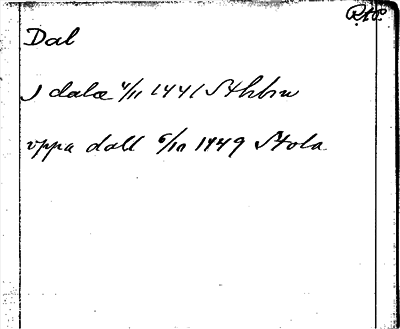 Dal
J dala 4/11 1441 Sthbrev
vppa dall 6/10 1449 Stola